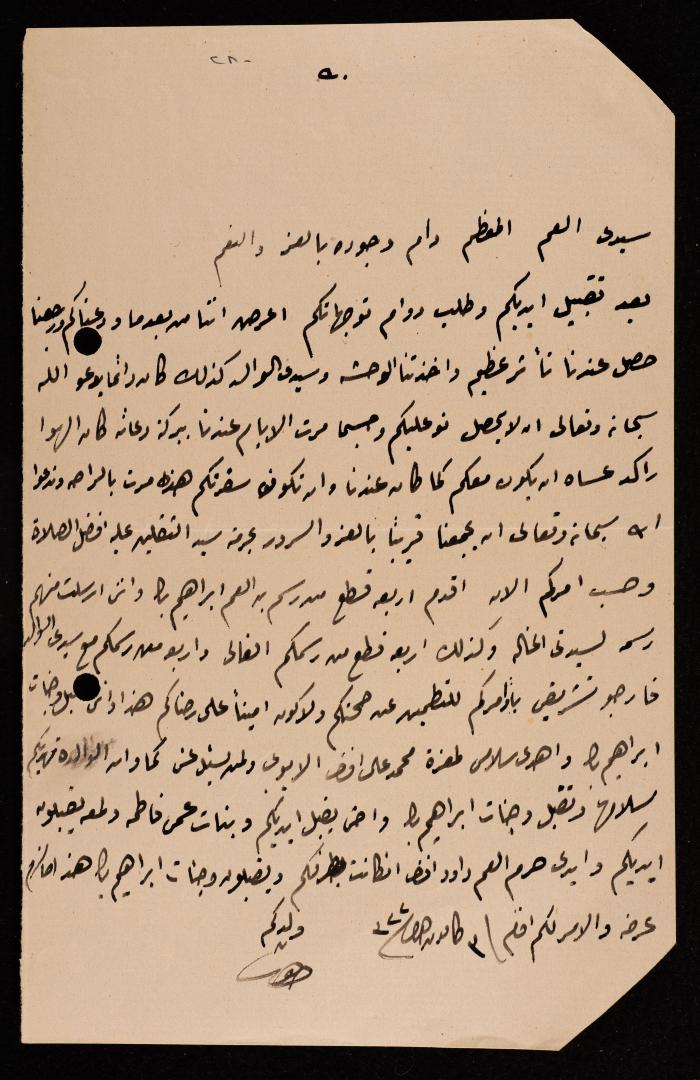 ٢٨٠
سيدى العم المعظم دام وجوده بالعز والنعم
بعد تقبيل ايديكم وطلب دوام توجهاتكم اعرض اننا من بعد ما ودعناكم ورجعنا
حصل عندنا تأثر عظيم واخذتنا الوحشه وسيدى الوالد كذلك كان دائما يدعو الله
سبحانه وتعالى ان لا يحصل نو عليكم وحسبما مرت الايام عندنا ببركة دعائه كان الهوا
راكد عساه ان يكون معكم كما كان عندنا وان تكون سفرتكم هذه مرت بالراحه وندعوا
الله سبحانه وتعالى ان يجمعنا قريبا بالعز والسرور بحرمة سيد الثقلين عليه افضل الصلاة
وحسب امركم الان اقدم اربعه قطع من رسم العم ابراهيم بك وانى ارسلت منهم
رسم لسيدتى الخاله وكذلك اربعه قطع من رسمكم الغالى واربع من رسمكم مع سيدى الوالد
فارجو تشريفى باوامركم للتطمين عن صحتكم ولاكون امينا على رضاكم هذا وانى اقبل وجنات
ابراهيم بك واهدى سلامى لحضرة محمد على افندى الايوبى ولمن يسئل عنى كما وان الوالده تهديكم
سلامها وتقبل وجنات ابراهيم بك واختى يقبل ايديكم وبنات عمى فاطمه ولمعه يقبلون
ايديكم وايدى حرم العم داود افندى انكانت بطرفكم ويقبلون وجنات ابراهيم بك هذا ما لزم
عرضه والامر لكم افندم ٣ كانون
ولدكم